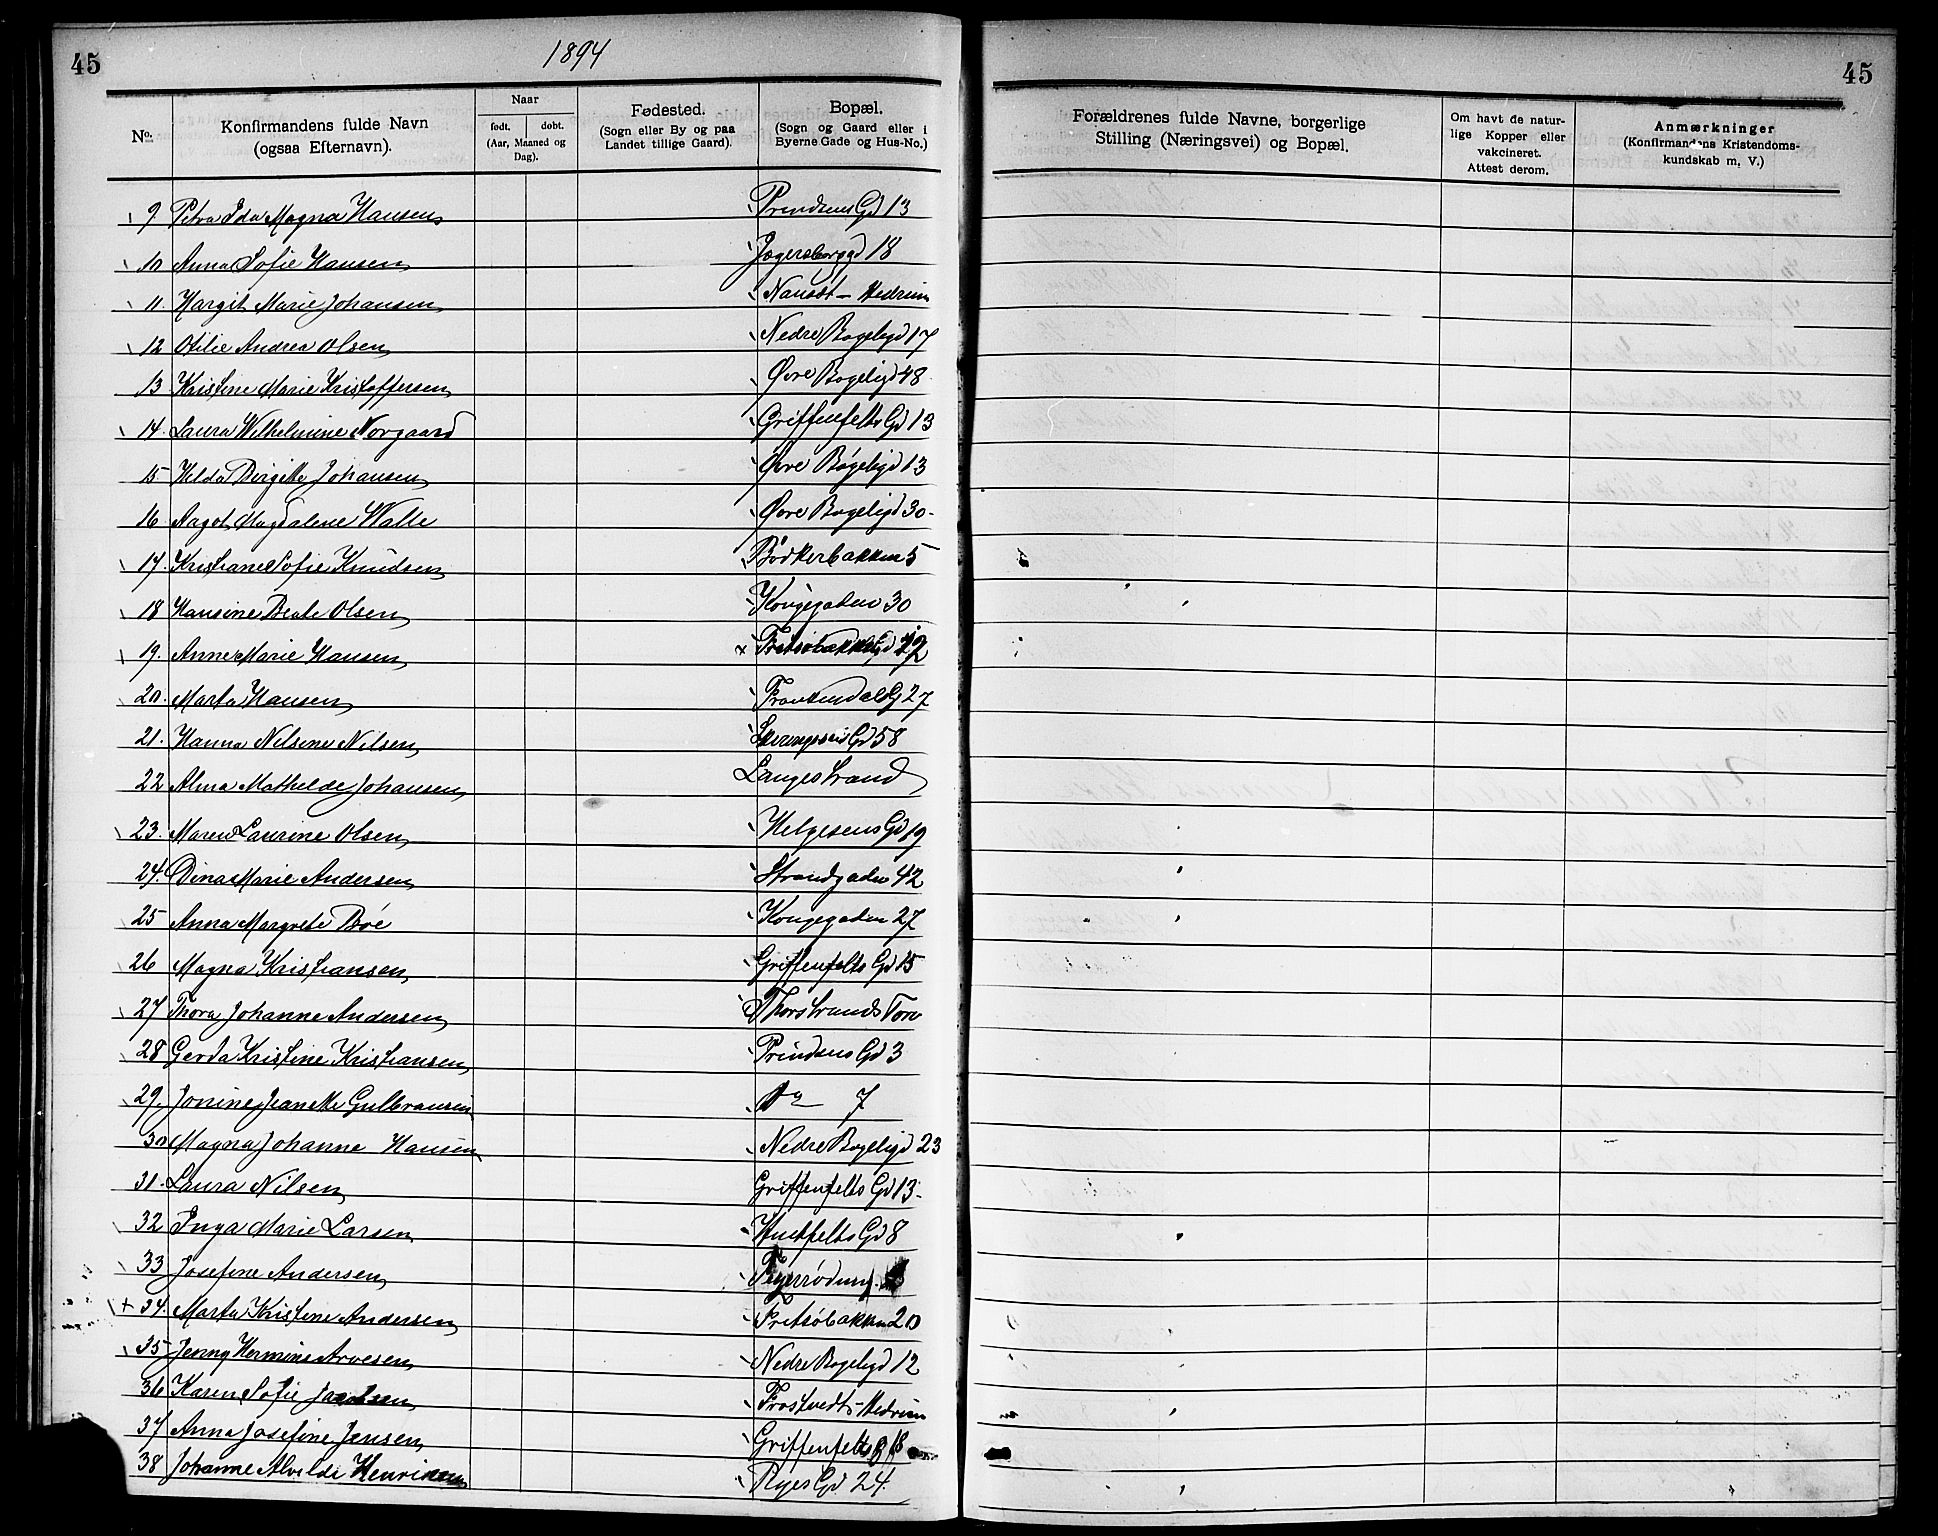 45
1894
45
No.
Konfirmandens fulde Navn
(ogsaa Efternavn).
Naar
født. døbt.
(Aar, Maaned og Dag).
Fødested.
(Sogn eller By og paa
Landet tillige Gaard).
Bopæl.
(Sogn og Gaard eller i
Byerne Gade og Hus-No.)
Forældrenes fulde Navne, borgerlige
Stilling (Næringsvei) og Bopæl.
Om havt de natur-
lige Kopper eller
vakcineret.
Attest derom.
Anmærkninger
(Konfirmandens Kristendoms-
kundskab m. V.)
9 Petra Ida Magna Hansen Prindsens Gd 13
10 Anna Sofie Hansen Jegersborggd 18
11. Hargit Marie Johansen Nansdt - Hedrum
12 Otilie Andrea Olsen Nedre Bøgeligd 17
13 Kristine Marie Kristoffersen Øvre Bøgeligd 48
14. Laura Wilhelmine Norgaard Griffenfelts Gd 13
15 Hilda Birgitte Johansen Øvre Bøgeligd 13
16 Aagot Magdalene Walle Øvre Bøgeligd 30
17. Kristiane Sofie Knudsen Bødkerbakken 5
18 Hansine Beate Olsen Kongegaden 30
19. Anne Marie Hansen
20. Marta Hansen Frankendalsg 27
21. Hanna Nilsine Nilsen Gd 58
22 Alma Mathelde Johansen Langestrand
23. Maren Laurine Olsen Helgesens Gd 19
24. Dina Marie Andersen Strandgaden 42
25 Anna Margrete Bøe Kongegaden 27
26 Magna Kristiansen Griffenfelts Gd 15
27 Thora Johanne Andersen Thorstrands Torv
28 Gerda Kristine Kristiansen Prindsens Gd 3
29. Jonine Jeanette Gulbransen Do 7
30 Magna Johanne Hansen Nedre Bøgeligd 23
31. Laura Nilsen Griffenfelts Gd 13
32 Inga Marie Larsen Huitfelts Gd 8
33 Josefine Andersen
+ 34. Marta Kristine Andersen Fritsöbakken 20
35 Jenny Hermine Arvesen Nedre Bøgeligd 12
36 Karen Sofie Jacobsen Frostvedt - Hedrum
37 Anna Josefine Jensen Griffenfelts g 18
38 Johanne Alvilda Henriksen Ryes Gd 24.